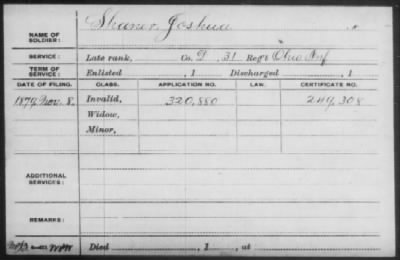 NAME OF SOLDIER: Shaner, Joshua
SERVICE: Late rank, Co. D, 31 Reg't Ohio Inf
TERM OF SERVICE: Enlisted , 1 Discharged , 1
DATE OF FILING. CLASS. APPLICATION NO. LAW. CERTIFICATE NO.
1879 Nov. 8, Invalid, 320,880 249,308
Widow,
Minor,
ADDITIONAL SERVICES:
REMARKS:
Died , 1 , at